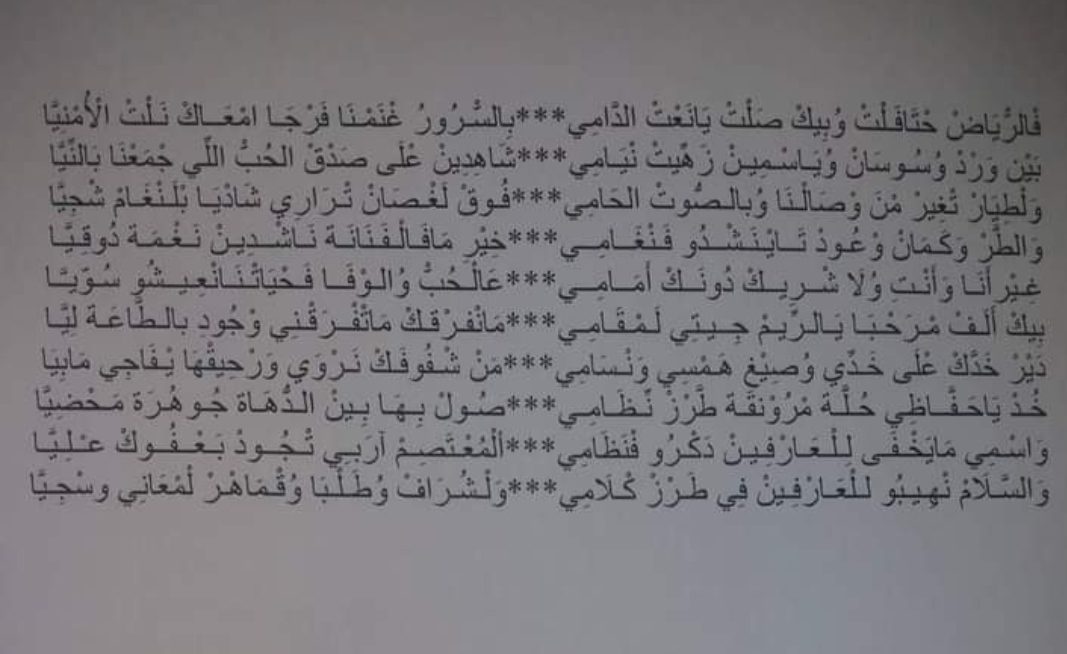 فَالرِّيَاضْ حْتَافَلْتْ وُبِيكْ صَلْتْ يَانَعْتْ الدَّامِي***بِالسُّرُورُ غْنَمْنَا فَرْجَا امْعَــاكْ نَـلْـتْ الْأُمْنِيَّا
بَيْن وَرْدْ وُسُوسَانْ وُيَـاسْـمِيـنْ زَهِّيتْ نْيَـامِي***شَاهِدِينْ عْلَى صَدْقْ الحُبُّ اللِّي جْمَعْنَا بَالنِّيَّا
وَلْطِيَارْ تْغِيرْ مْنَ وْصَالْنَا وُبالـصُّوتْ الحَامِي***فُوقْ لَغْصَانْ تْرَارِي شَادْيَـا بْلَنْغَامْ شْجِيَّا
وَالطَّرْ وَكَمَانْ وْعُـودْ تَــايْـنَـشْـدُو فَـنْـغَـامِــي***خِيْرْ مَافَالْـفَـنَانَـة نَـاشْـدِيـنْ نَـغْـمَـة دُوقِـيَّـا
غـيْر أَنَـا وَأَنْـتِ وُلَا شْـرِيـكْ دُونَـكْ أَمَـامِـي***عَالْـحُبُّ وُالـوْفَـا فَـحْيَاتْـنَـانْعِيـشُو سْـوِيَّـا
بِيكْ أَلَفْ مْرَحْبَـا يَـالـرِّيـمْ جِـيـتِي لَـمْقَـامِي***مَانْفَرْقَكْ مَاتْفَـرَقْنِي وْجُودِ بالـطَّاعَـة لِيَّا
دَيْرْ خَدَّكْ عْلَى خَـدِّي وُصِيْغ هَمْسِي وَنْـسَامِي***مَنْ شْفُوفَكْ نَرْوَي وَرْحِيقْهَا يْـفَاجِي مَابِيَا
خُدْ يَاحَفَّـاظِي حُلَّـة مْرُوَنْقَة طَرْزْ نْـظَـامِـي***صُولْ بِـهَـا بِينْ الـدُّهَـاة جُوهْرَة مَـحْضِيَّا
وَاسْمِي مَايَخْفَى لِلْـعَـارْفِـيـنْ دَكْـرُو فْنَظَامِي***اَلْمُعْتَصِمْ آرَبِـي تْـجُـودْ بَـعْـفُـوكْ عـلِـيَّـا
وَالسَّلَامْ نْهِيبُو لَلْعَارْفِينْ فِي طَرْزْ كْلَامِي***وَلَشْرَافْ وُطَلْبَا وُقْـمَـاهْـرْ لَمْعَانِي وسْجِيَّا